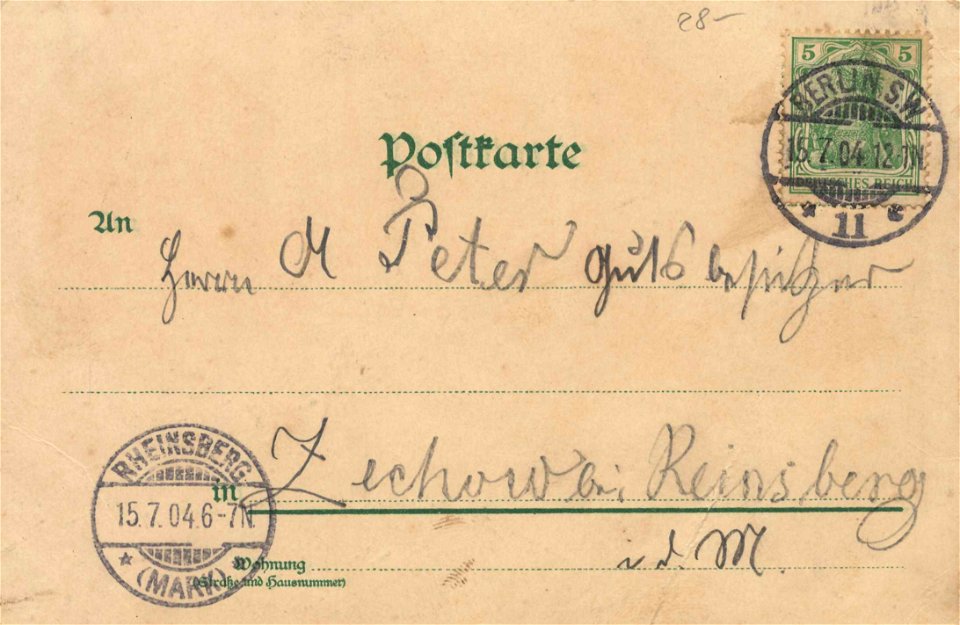 28-
5 5
BERLIN S.W.
15.7.04.12-1N.
DEUTSCHES REICH
* 11 *
Postkarte
An
Herrn A Peter Gutsbesitzer
RHEINSBERG
15.7.04.6-7N.
* (MARK) *
in Zechow bei Reinsberg
Wohnung
(Straße und Hausnummer)
i. d. M.